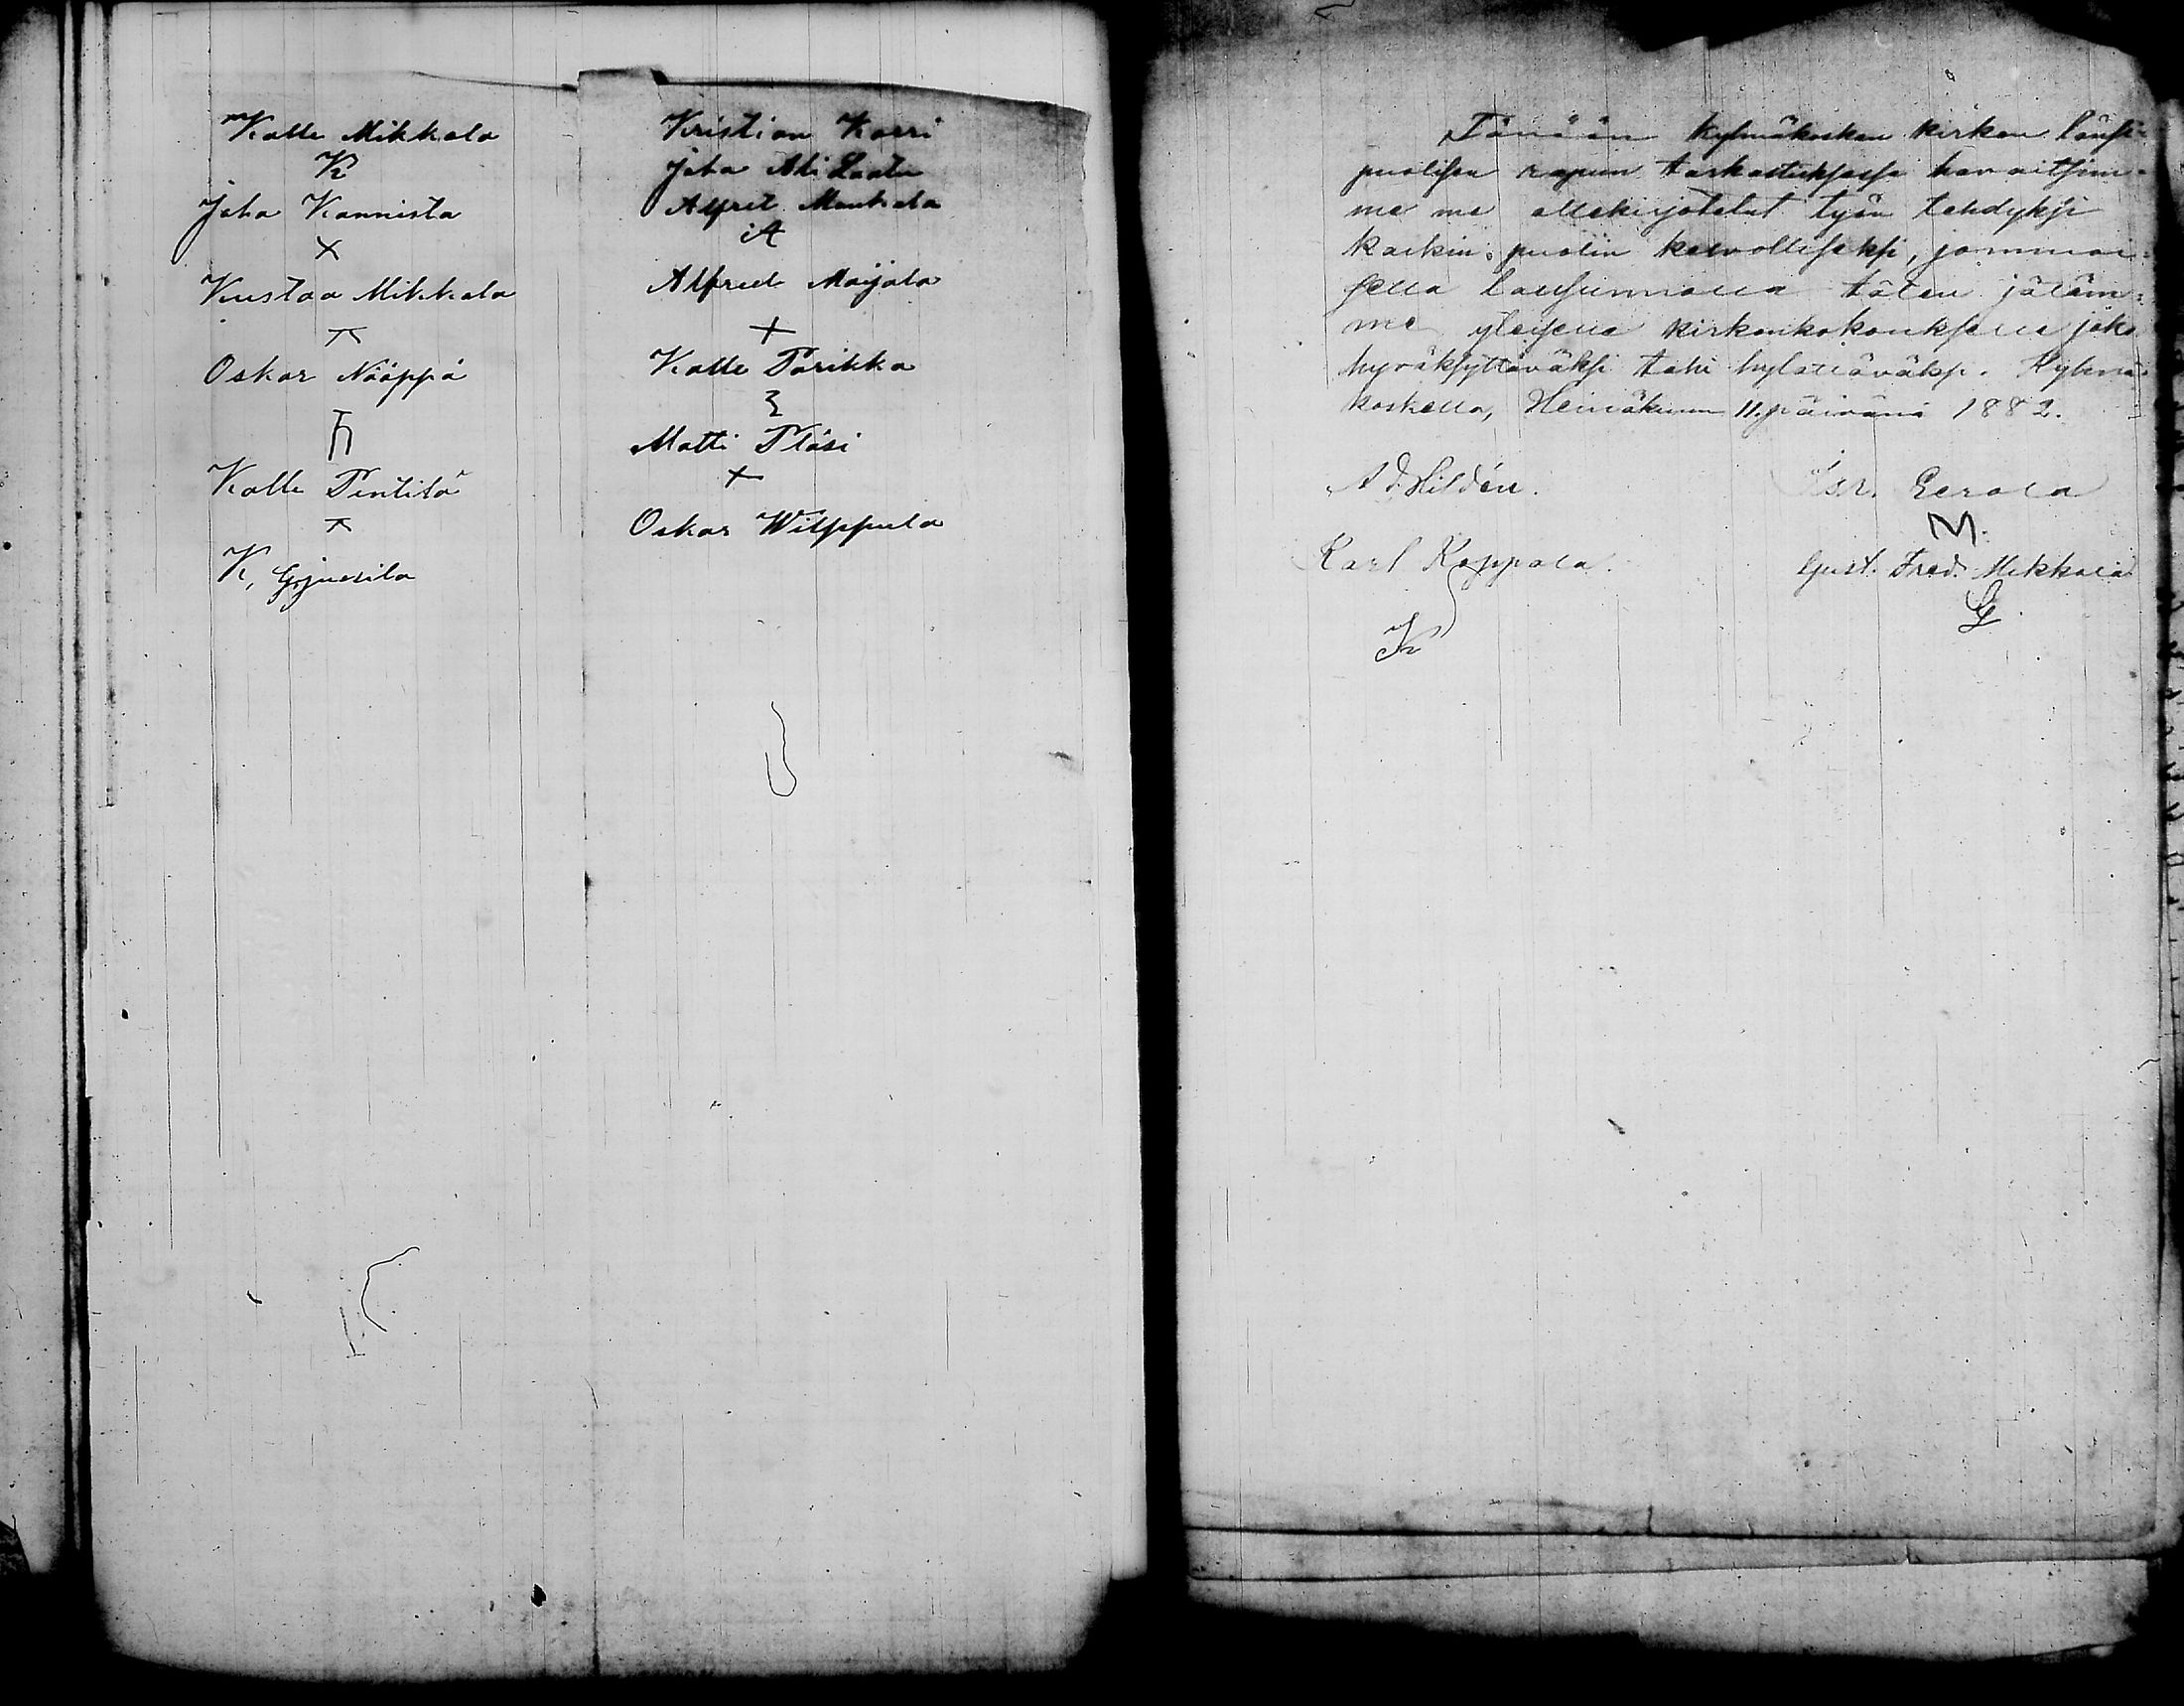 Kalle Mikkola
K
Juha Kannisto
X
Kustaa Mikkola
Oskar Nääppä
Kalle Penttilä
K, G, juusila
Kristian Korri
Juha Ali Laatu
Alfret Mankala
A
Alfred Maijala
+
Kalle Parikka
Matti Pläsi
+
Oskar Wilppula
Tänään kylmäkosken kirkon länsi-
puolisen rapun tarkastuksessa havaitsim-
me me allekirjotetut työn tehdyksi
kaikin puolin kelvolliseksi, jommoi-
sella lausunnolla täten jätäm-
me yleisellä kirkonkokouksella joko
hyväksyttäväksi tahi hyljättäväksi. Kylmä-
koskella, Heinäkuun 11. päivänä 1882.
A D. Hildén.
Isr. Eerola
M.
Karl Koppala.
K
Gust. Fred. Mikkola
G.